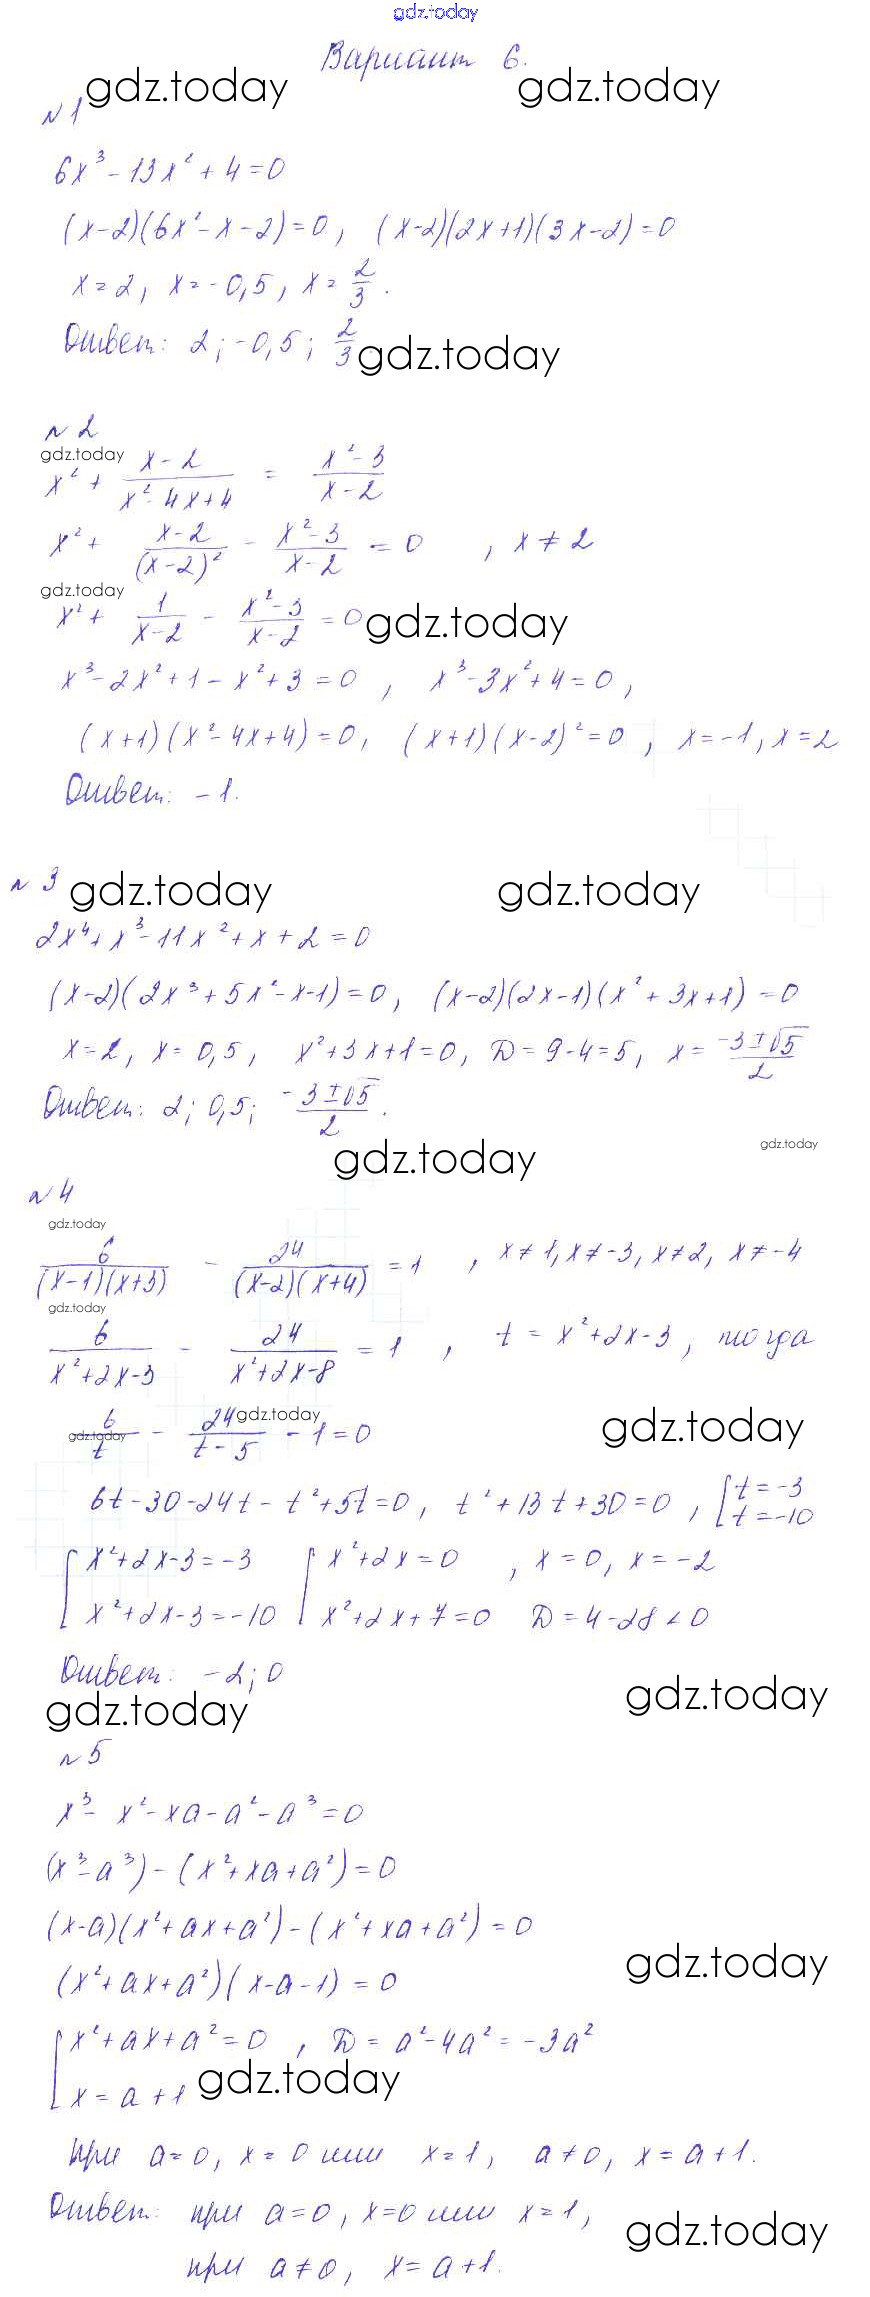 gdz.today
Вариант 6.
gdz.today gdz.today
№1
6x³ - 13x² + 4 = 0
(x-2)(6x² - x - 2) = 0, (x-2)(2x+1)(3x-2) = 0
x = 2, x = -0,5, x = 2/3.
Ответ: 2; -0,5; 2/3.
gdz.today
№2
gdz.today
x² + (x-2)/(x²-4x+4) = (x²-3)/(x-2)
x² + (x-2)/(x-2)² - (x²-3)/(x-2) = 0, x ≠ 2
gdz.today
x² + 1/(x-2) - (x²-3)/(x-2) = 0
gdz.today
x³ - 2x² + 1 - x² + 3 = 0, x³ - 3x² + 4 = 0,
(x+1)(x² - 4x + 4) = 0, (x+1)(x-2)² = 0, x = -1, x = 2
Ответ: -1.
№3
gdz.today gdz.today
2x⁴ + x³ - 11x² + x + 2 = 0
(x-2)(2x³ + 5x² - x - 1) = 0, (x-2)(2x-1)(x² + 3x + 1) = 0
x = 2, x = 0,5, x² + 3x + 1 = 0, D = 9-4 = 5, x = (-3±√5)/2
Ответ: 2; 0,5; (-3±√5)/2.
gdz.today gdz.today
№4
gdz.today
6/((x-1)(x+3)) - 24/((x-2)(x+4)) = 1, x ≠ 1, x ≠ -3, x ≠ 2, x ≠ -4
gdz.today
6/(x²+2x-3) - 24/(x²+2x-8) = 1, t = x² + 2x - 3, тогда
6/t - 24/(t-5) - 1 = 0
gdz.today gdz.today gdz.today
6t - 30 - 24t - t² + 5t = 0, t² + 13t + 30 = 0, [t = -3
t = -10
[x² + 2x - 3 = -3 [x² + 2x = 0, x = 0, x = -2
x² + 2x - 3 = -10 x² + 2x + 7 = 0 D = 4 - 28 < 0
Ответ: -2; 0
gdz.today gdz.today
№5
x³ - x² - xa - a² - a³ = 0
(x³ - a³) - (x² + xa + a²) = 0
(x-a)(x² + ax + a²) - (x² + xa + a²) = 0
gdz.today
(x² + ax + a²)(x - a - 1) = 0
[x² + ax + a² = 0, D = a² - 4a² = -3a²
x = a + 1
gdz.today
при a = 0, x = 0 или x = 1, a ≠ 0, x = a + 1.
Ответ: при a = 0, x = 0 или x = 1,
gdz.today
при a ≠ 0, x = a + 1.